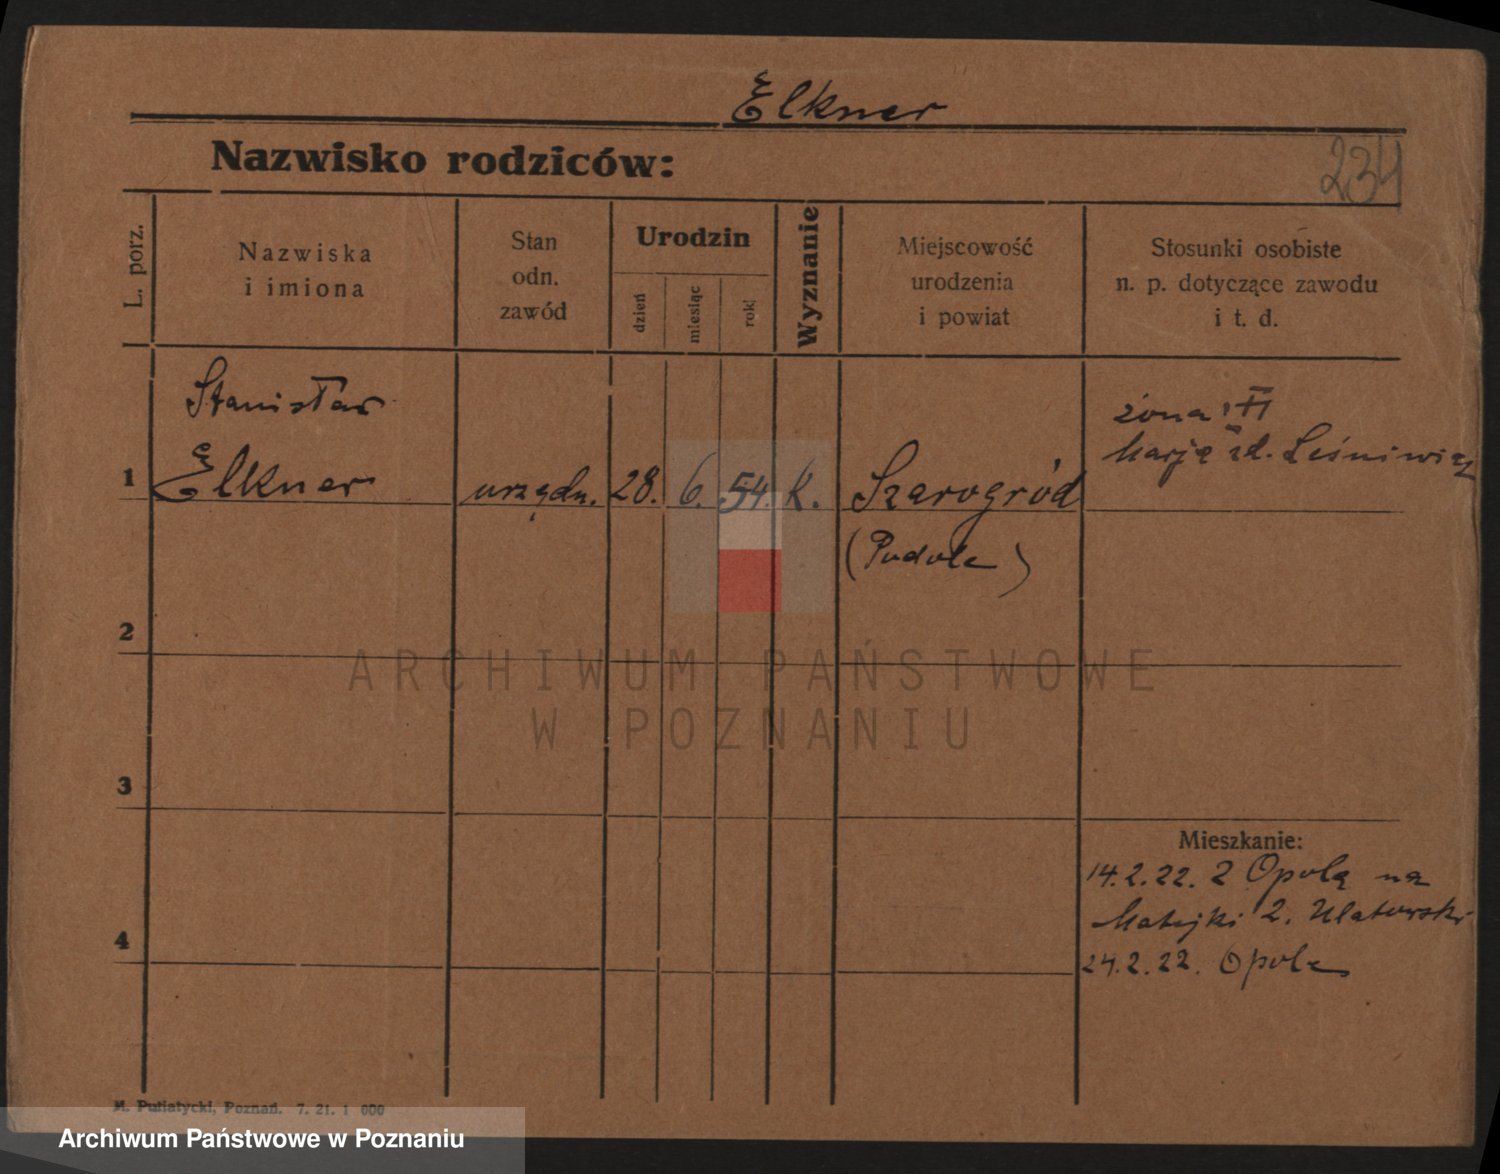 Elkner
Nazwisko rodziców:
234
L. porz.
Nazwiska
i imiona
Stan
odn.
zawód
Urodzin
dzień
miesiąc
rok
Wyznanie
Miejscowość
urodzenia
i powiat
Stosunki osobiste
n. p. dotyczące zawodu
i t. d.
1
Stanisław
Elkner
urzędn.
28.
6.
54.
k.
Szarogród
(Podole)
żona II
Marja zd.
2
ARCHIWUM PAŃSTWOWE
W POZNANIU
3
Mieszkanie:
14.2.22. z Opola na
Matejki 2. Ulatowski
4
24.2.22. Opole
M. Putiatycki, Poznań. 7. 21. 1 000
Archiwum Państwowe w Poznaniu